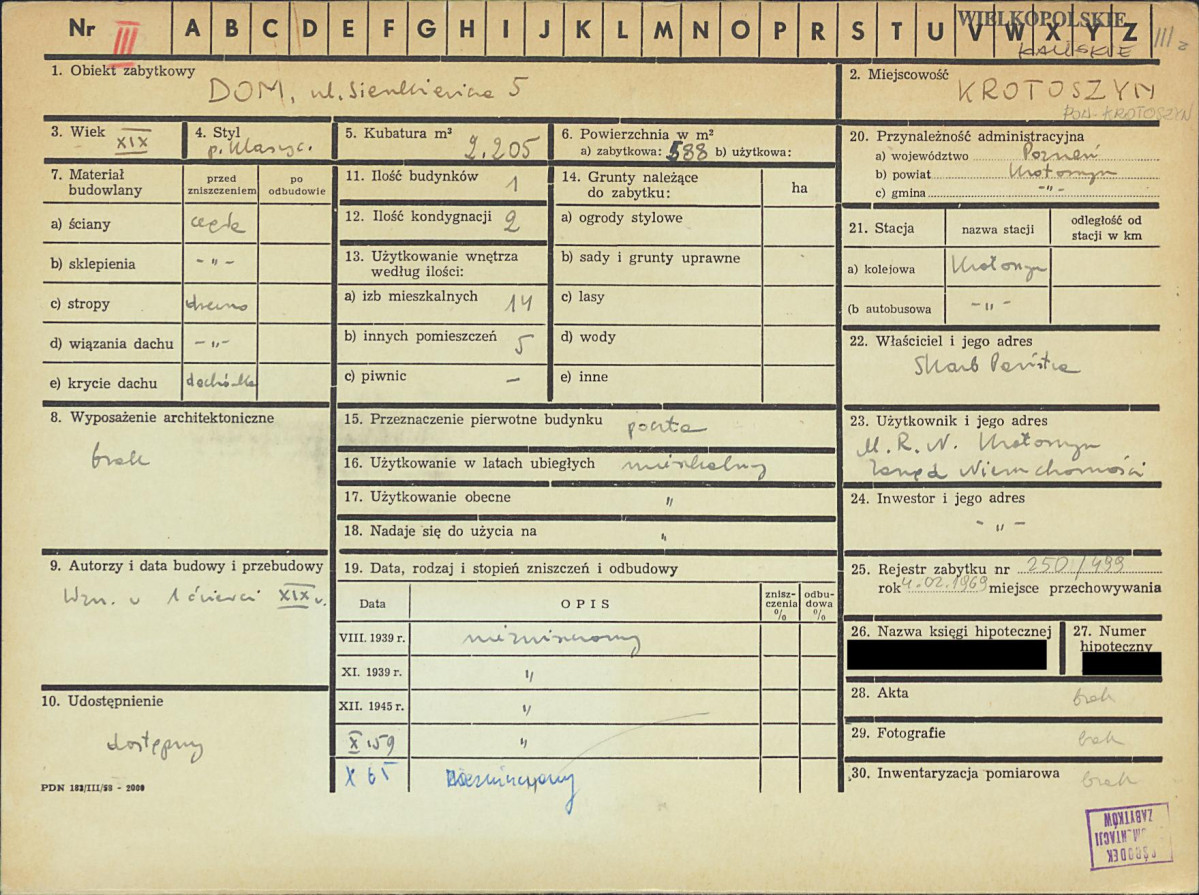 Nr III A B C D E F G H I J K L M N O P R S T U V W X Y Z
WIELKOPOLSKIE
KALISKIE
III
1. Obiekt zabytkowy
DOM, ul. Sienkiewicza 5
2. Miejscowość
KROTOSZYN
POW. KROTOSZYN
3. Wiek XIX
4. Styl
p. klasyc.
5. Kubatura m³
2.205
6. Powierzchnia w m²
a) zabytkowa: 588 b) użytkowa:
7. Materiał budowlany
przed zniszczeniem
po odbudowie
a) ściany cegła
b) sklepienia -"-
c) stropy drewno
d) wiązania dachu -"-
e) krycie dachu dachówka
8. Wyposażenie architektoniczne
brak
9. Autorzy i data budowy i przebudowy
Wzn. w 1 ćwierci XIX w.
10. Udostępnienie
dostępny
PDN 182/III/58 - 2000
11. Ilość budynków 1
12. Ilość kondygnacji 2
13. Użytkowanie wnętrza
według ilości:
a) izb mieszkalnych 14
b) innych pomieszczeń 5
c) piwnic —
14. Grunty należące
do zabytku:
ha
a) ogrody stylowe
b) sady i grunty uprawne
c) lasy
d) wody
e) inne
15. Przeznaczenie pierwotne budynku poczta
16. Użytkowanie w latach ubiegłych mieszkalny
17. Użytkowanie obecne "
18. Nadaje się do użycia na "
19. Data, rodzaj i stopień zniszczeń i odbudowy
Data
OPIS
zniszczenia %
odbudowa %
VIII. 1939 r. niezniszczony
XI. 1939 r. "
XII. 1945 r. "
X 59 "
X 65 niezniszczony
20. Przynależność administracyjna
a) województwo Poznań
b) powiat Krotoszyn
c) gmina -"-
21. Stacja
nazwa stacji
odległość od stacji w km
a) kolejowa Krotoszyn
(b autobusowa -"-
22. Właściciel i jego adres
Skarb Państwa
23. Użytkownik i jego adres
M.R.N. Krotoszyn
Zarząd Nieruchomości
24. Inwestor i jego adres
-"-
25. Rejestr zabytku nr 250/499
rok 4.02.1969 miejsce przechowywania
26. Nazwa księgi hipotecznej
27. Numer
hipoteczny
28. Akta brak
29. Fotografie brak
30. Inwentaryzacja pomiarowa brak
OŚRODEK
DOKUMENTACJI
ZABYTKÓW